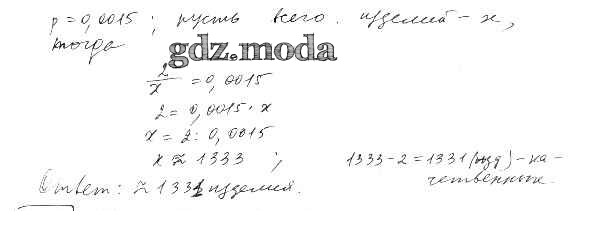 p = 0,0015 ; пусть всего изделий - x,
тогда
gdz.moda
2/x = 0,0015
2 = 0,0015 · x
x = 2 : 0,0015
x ≈ 1333 ; 1333 - 2 = 1331 (изд) - ка-
чественных.
Ответ: ≈ 1331 изделий.